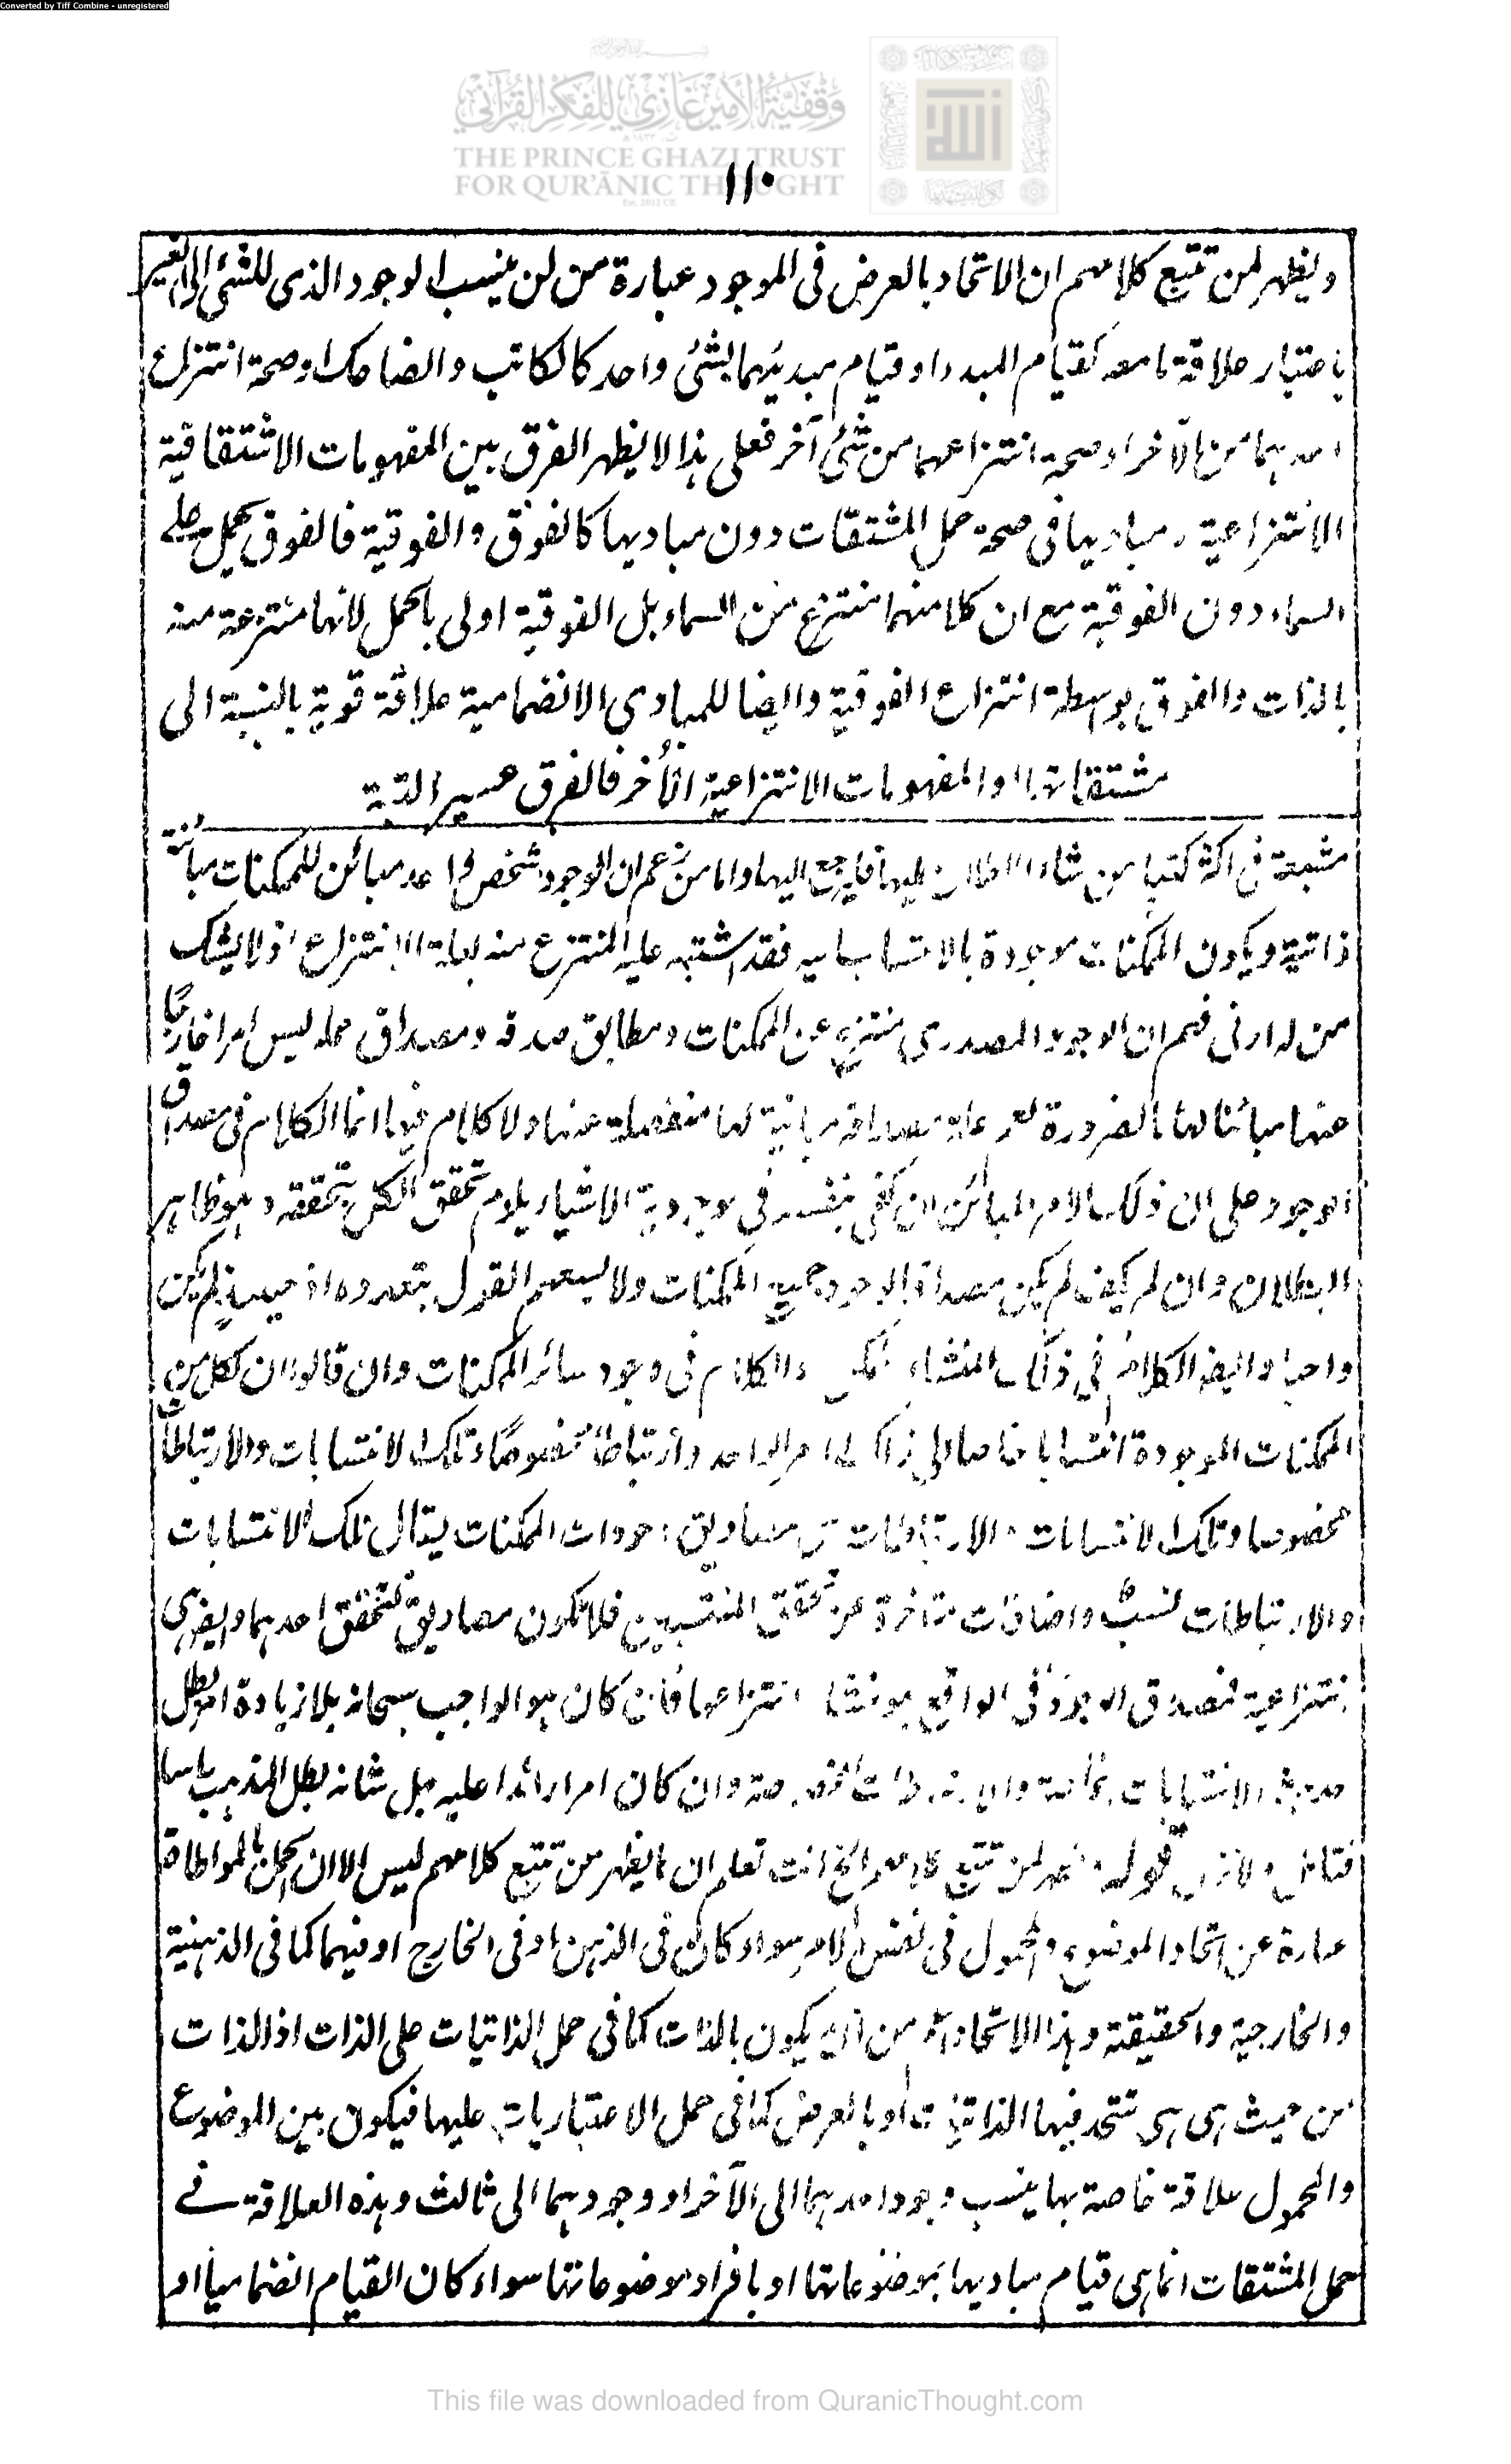 Converted by Tiff Combine - unregistered
وقفية الأمير غازي للفكر القرآني
THE PRINCE GHAZI TRUST
FOR QUR'ĀNIC THOUGHT
Est. 2012 CE
١١٠
ويظهر لمن تتبع كلامهم ان الاتحاد بالعرض فى الموجود عبارة من لن ينسب الوجود الذى للشئ الى الغير
باعتبار علاقة ما معه كقيام المبدء او قيام مبدئيهما بشئ واحد كالكاتب والضاحك او صحة انتزاع
احدهما من الآخر او صحة انتزاعهما من شئ آخر فعلى هذا لا يظهر الفرق بين المفهومات الاشتقاقية
الانتزاعية و مباديها فى صحة حمل المشتقات دون مباديها كالفوق والفوقية فالفوق يحمل على
السماء دون الفوقية مع ان كلا منهما منتزع من السماء بل الفوقية اولى بالحمل لانها منتزعة منه
بالذات والفوق بواسطة انتزاع الفوقية وايضا للمبادى الانضمامية علاقة قوية بالنسبة الى
مشتقاتها او المفهومات الانتزاعية الأخر فالفرق عسير التبة
مشبعة فى اكثر كتبنا من شاء الاطلاع عليها فليرجع اليها واما من زعم ان الوجود شخص واحد مبائن للممكنات مبائنة
ذاتية ويكون الممكنات موجودة بالانتساب اليه فقد اشتبه عليه المنتزع منه بعلة الانتزاع اذ لا يشك
من له ادنى فهم ان الوجود المصدرى منتزع عن الممكنات ومطابق صدقه ومصداق حمله ليس امرا خارجًا
عنها مبائنا لها بالضرورة نعم علة مصداقه مبائنة لها منفصلة عنها ولا كلام فيها انما الكلام فى مصداق
الوجود على ان ذلك الامر المبائن ان كفى بنفسه فى موجودية الاشياء يلزم تحقق الكل بتحققه وهو ظاهر
البطلان وان لم يكف لم يكن مصداق الوجود جميع الممكنات ولا يسعهم القول بتعدده اذ حينئذ لم يكن
واجبا وايضا الكلام فى ذلك المنشاء الكلام فى وجود سائر الممكنات وان قالوا ان لكل من
الممكنات الموجودة انتسابا خاصا الى ذلك الامر الواحد وارتباطا مخصوصا وتلك الانتسابات والارتباطات
مخصوصا وتلك الانتسابات والارتباطات مصاديق وجودات الممكنات يقال تلك الانتسابات
والارتباطات نسب واضافات متأخرة عن تحقق المنتسبين فلا تكون مصاديق لتحقق احدهما وايضا هى
انتزاعية فمصداق الوجود فى الواقع هو منشأ انتزاعها فان كان هو الواجب سبحانه بلا زيادة امر بطل
حديث الانتسابات وان كان امرا زائدا عليه جل شانه بطل المذهب باساسه
فتامل ولا تزل قوله ويظهر لمن تتبع كلامهم الخ انت تعلم ان ما يظهر من تتبع كلامهم ليس الا ان الحمل بالمواطاة
عبارة عن اتحاد الموضوع والمحمول فى نفس الامر سواء كان فى الذهن او فى الخارج او فيهما كما فى الذهنية
والخارجية والحقيقية وهذا الاتحاد اعم من ان يكون بالذات كما فى حمل الذاتيات على الذات اذ الذات
من حيث هى هى تتحد فيها الذاتيات او بالعرض كما فى حمل الاعتباريات عليها فيكون بين الموضوع
والمحمول علاقة خاصة بها ينسب وجود احدهما الى الآخر او وجودهما الى ثالث وهذه العلاقة فى
حمل المشتقات انما هى قيام مباديها بموضوعاتها او بافراد موضوعاتها سواء كان القيام انضماميا او
This file was downloaded from QuranicThought.com